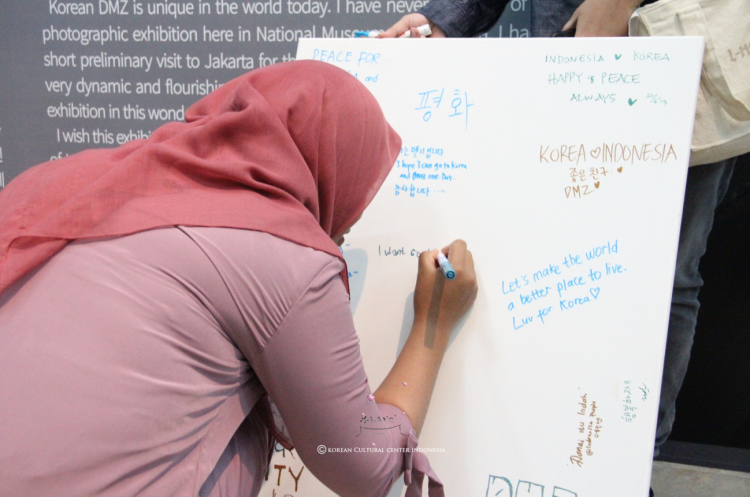 Korean DMZ is unique in the world today. I have never
photographic exhibition here in National Mus
short preliminary visit to Jakarta for th
very dynamic and flourishing
exhibition in this wond
I wish this exhibi
PEACE FOR
and
평화
I hope I can go to Korea
and DMZ one day.
감사합니다
I want
INDONESIA ♥ KOREA
HAPPY & PEACE
ALWAYS ♥
KOREA ♡ INDONESIA
좋은 친구
DMZ ♥
Let's make the world
a better place to live.
Luv for Korea ♡
DMZ
© KOREAN CULTURAL CENTER INDONESIA